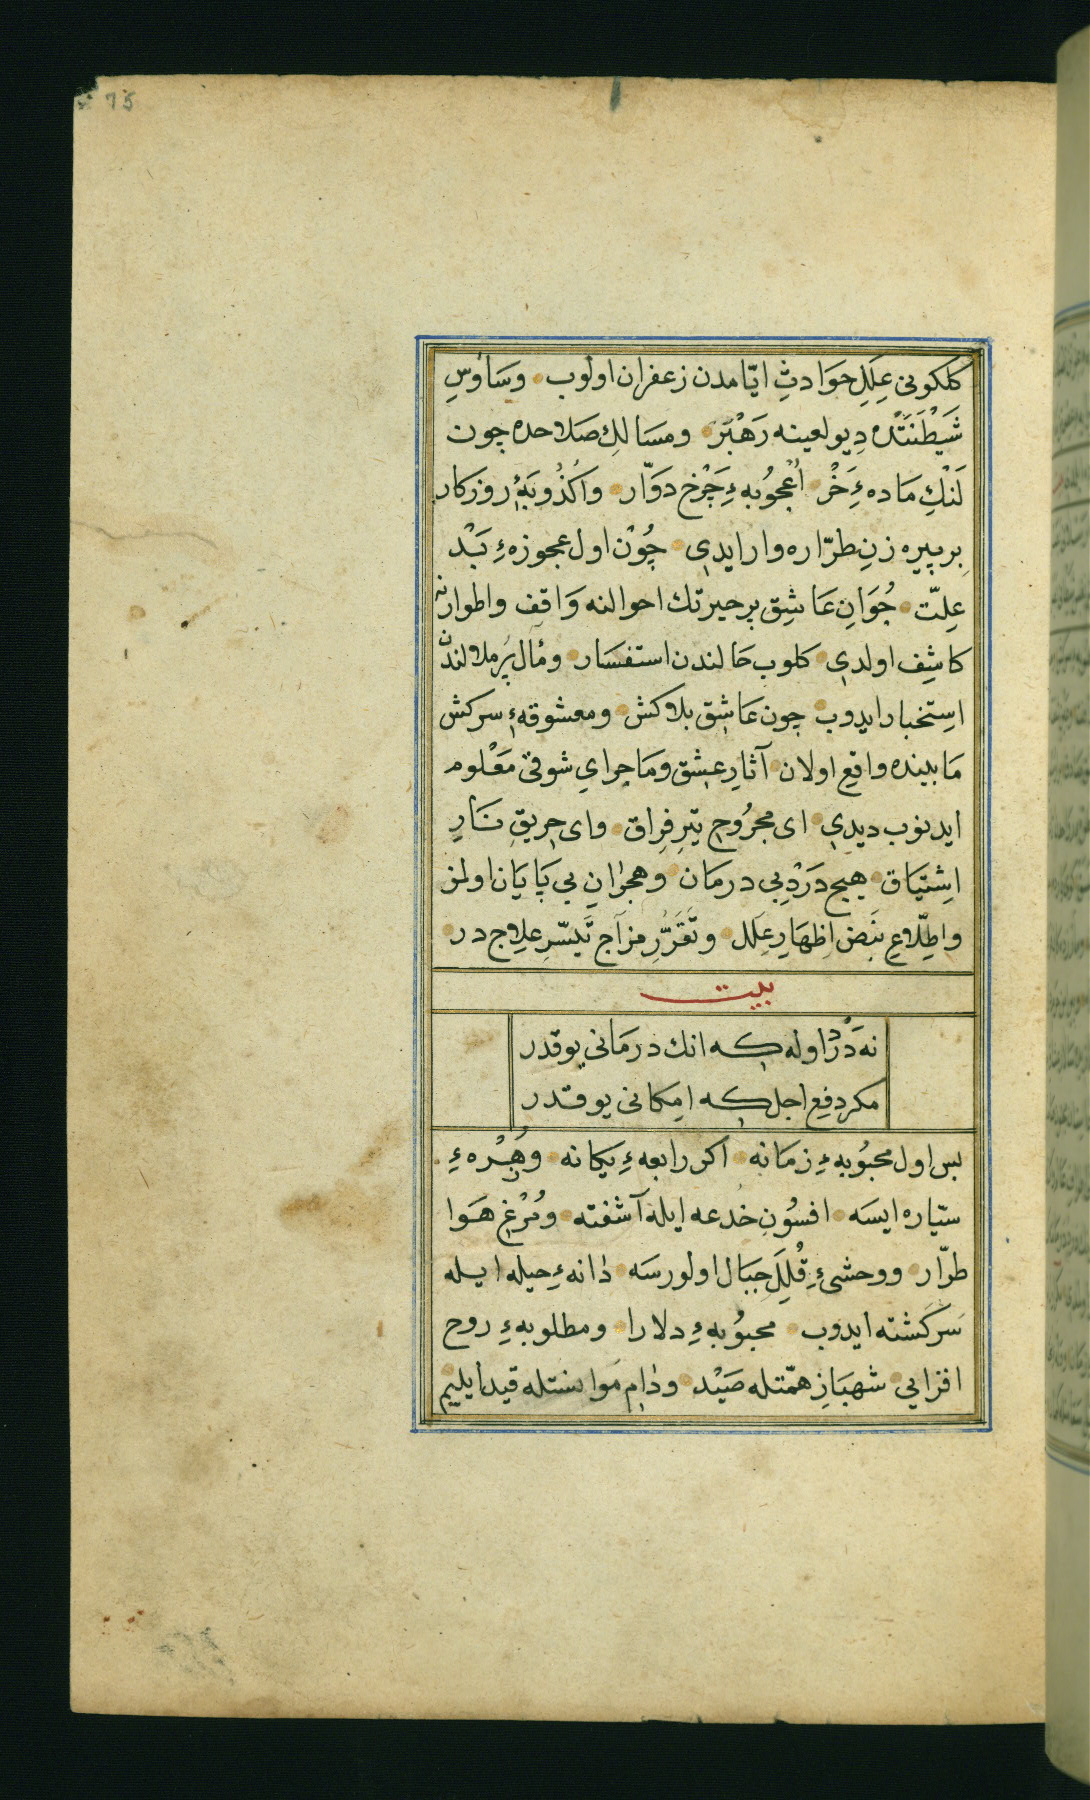 75
كلكونی عِلَلِ حَوَادثِ ایّامدن زعفران اولوب وسَاوسِ
شَيْطَنَتْده دِيو لعينه رَهْبَر ومسَالكِ صَلاحده چون
لَنْكِ مَاده ءِ خَرْ اُعْجُوُبه ءِ چَرْخِ دَوّار واُكْذُوبَهٔ روزكار
بِر پيره زنِ طرّاره وار ايدی چُوْن اول عجوزه ءِ بَدْ
عِلّت جُوَانِ عَاشِق بر حيرتك احوالنه وَاقف واطوارنه
كاشِف اولدی كلوب حَالندن استفسَار ومآل پُر ملالندن
اِستِخبار ايدوب چون عَاشِق بلاكش ومعشوقه ءِ سركش
مَابيننده واقع اولان آثارِ عِشق ومَاجرایِ شوقی مَعْلوم
ايدنوب ديدی ای مجرُوحِ تيرِ فِراق وای حريقِ نَارِ
اِشتِيَاق هيچ دَرْدِ بی درمَان وهجرانِ بی پَايَان اولمز
واطِّلاعِ نبض اِظهَارِ عِلَل وتَقَرُّرِ مزاج تَيسّرِ علاج در
بيت
نه دَرْد اوله كه انك درمَانی يوقدر
مكر دفعِ اجل كه امكانی يوقدر
پس اول محبُوبه ءِ زمَانه اكر رابعه ءِ يكانه وزُهْره ءِ
سيّاره ايسه افسُونِ خدعه ايله آشفته ومُرْغِ هَوَا
طرّار ووحشیءِ قُلَلِ جبَال اولورسَه دانه ءِ حيله ايله
سَركَشته ايدوب محبُوبه ءِ دلارا ومطلوبه ءِ روح
افزایی شهبَازِ همّتله صَيْد ودامِ مَوانستله قيد ايليم